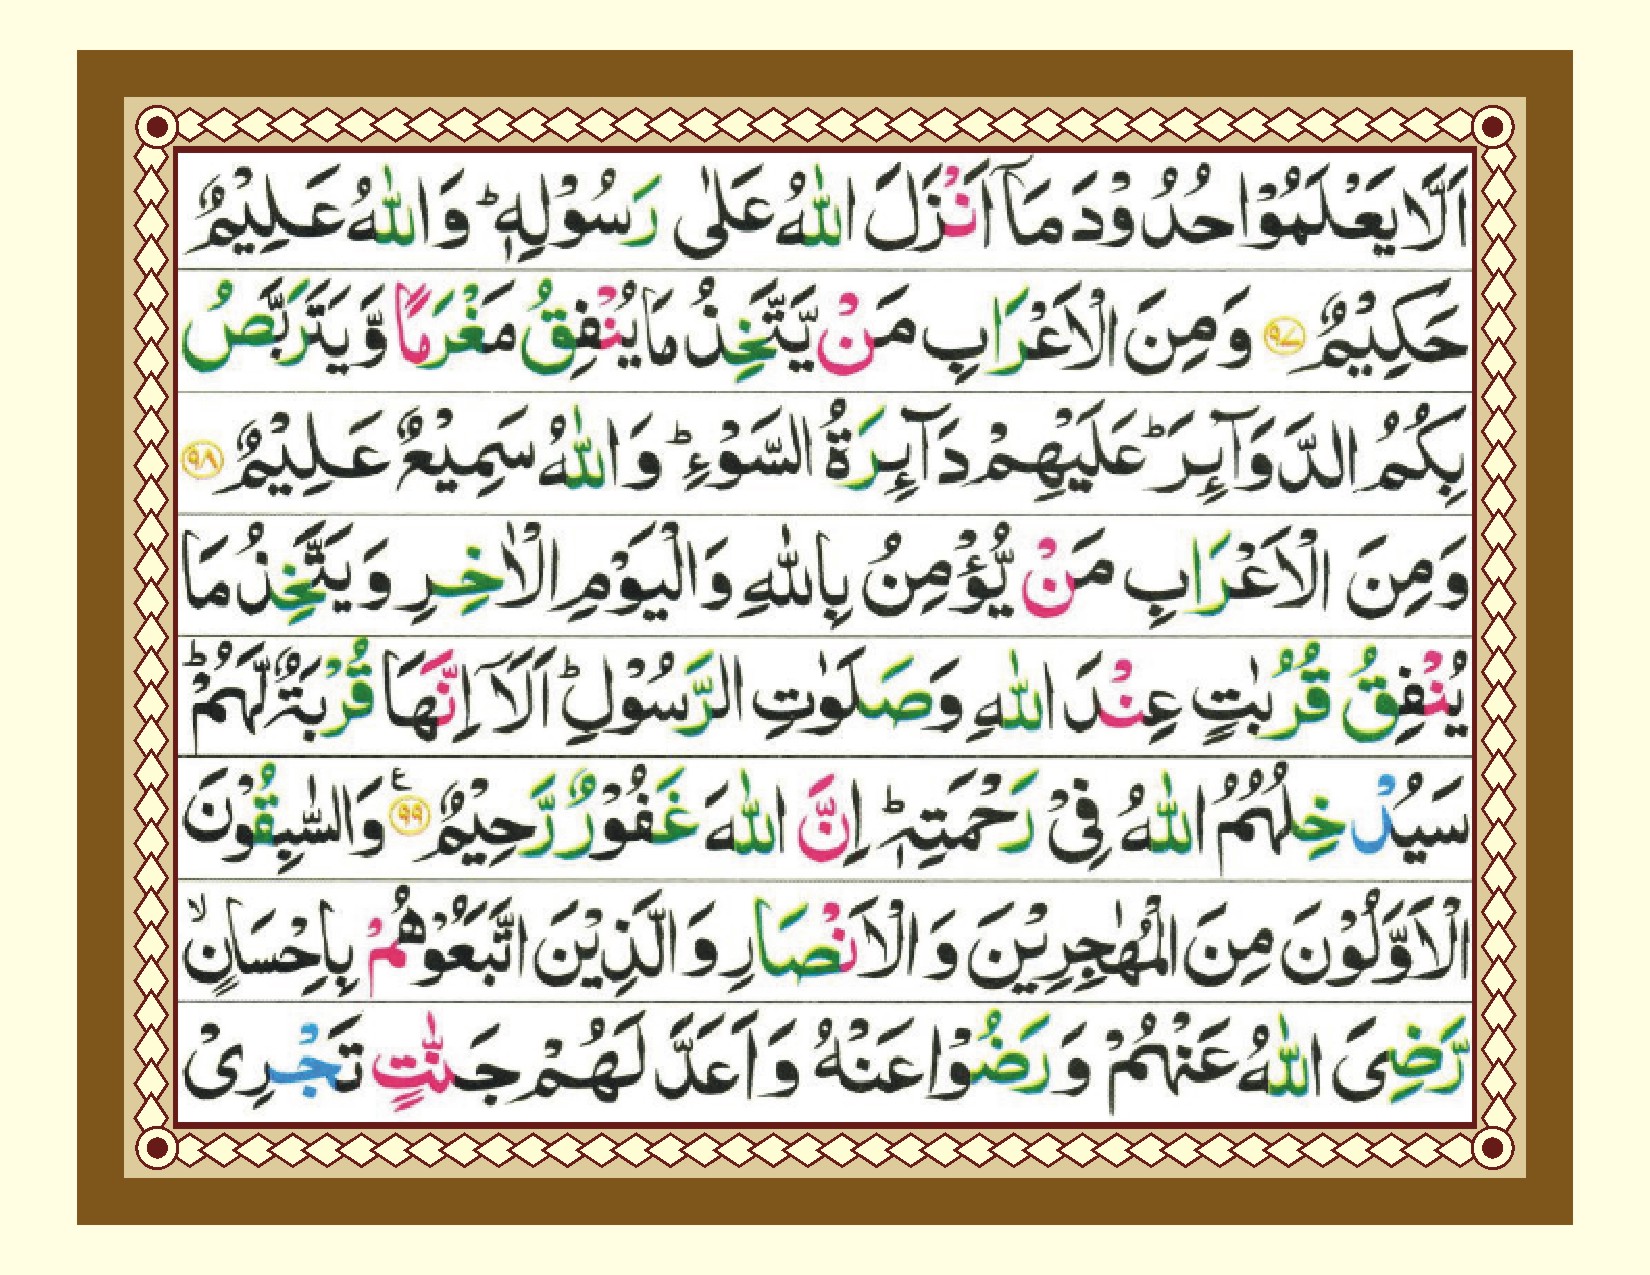 اَلَّا يَعْلَمُوْا حُدُوْدَ مَاۤ اَنْزَلَ اللّٰهُ عَلٰى رَسُوْلِهٖ ؕ وَاللّٰهُ عَلِيْمٌ
حَكِيْمٌ ﴿۹۷﴾ وَمِنَ الْاَعْرَابِ مَنْ يَّتَّخِذُ مَا يُنْفِقُ مَغْرَمًا وَّيَتَرَبَّصُ
بِكُمُ الدَّوَآئِرَ ؕ عَلَيْهِمْ دَآئِرَةُ السَّوْءِ ؕ وَاللّٰهُ سَمِيْعٌ عَلِيْمٌ ﴿۹۸﴾
وَمِنَ الْاَعْرَابِ مَنْ يُّؤْمِنُ بِاللّٰهِ وَالْيَوْمِ الْاٰخِرِ وَيَتَّخِذُ مَا
يُنْفِقُ قُرُبٰتٍ عِنْدَ اللّٰهِ وَصَلَوٰتِ الرَّسُوْلِ ؕ اَلَاۤ اِنَّهَا قُرْبَةٌ لَّهُمْ ؕ
سَيُدْخِلُهُمُ اللّٰهُ فِىْ رَحْمَتِهٖ ؕ اِنَّ اللّٰهَ غَفُوْرٌ رَّحِيْمٌ ﴿۹۹﴾ ع وَالسّٰبِقُوْنَ
الْاَوَّلُوْنَ مِنَ الْمُهٰجِرِيْنَ وَالْاَنْصَارِ وَالَّذِيْنَ اتَّبَعُوْهُمْ بِاِحْسَانٍ ۙ
رَّضِىَ اللّٰهُ عَنْهُمْ وَرَضُوْا عَنْهُ وَاَعَدَّ لَهُمْ جَنّٰتٍ تَجْرِىْ